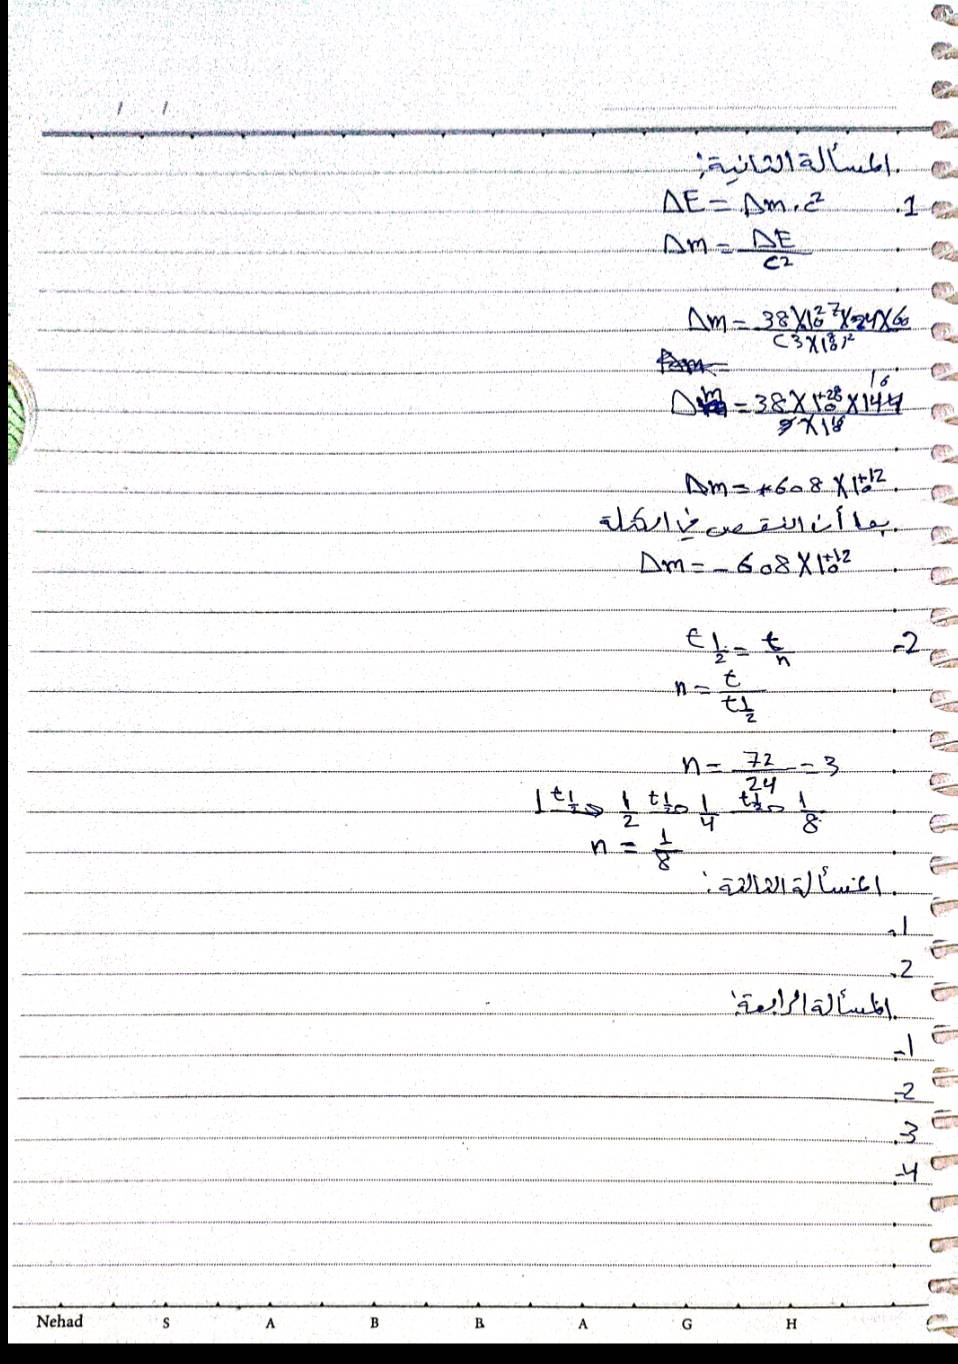 المسألة الثانية:
1. ΔE = Δm . c²
Δm = ΔE / c²
Δm = 38×10²⁷×24×60 / (3×10⁸)²
Δm = 38×10⁺²⁸×144 16 / 9×10¹⁶
Δm = +608 × 10⁺¹²
بما أن النقص في الكتلة
Δm = - 608 × 10⁺¹²
2- t 1/2 = t / n
n = t / t 1/2
n = 72 / 24 = 3
1 t1/2→ 1/2 t1/2→ 1/4 t1/2→ 1/8
n = 1/8
المسألة الثالثة:
1-
2.
المسألة الرابعة:
1-
2-
3.
4-
Nehad S A B B A G H